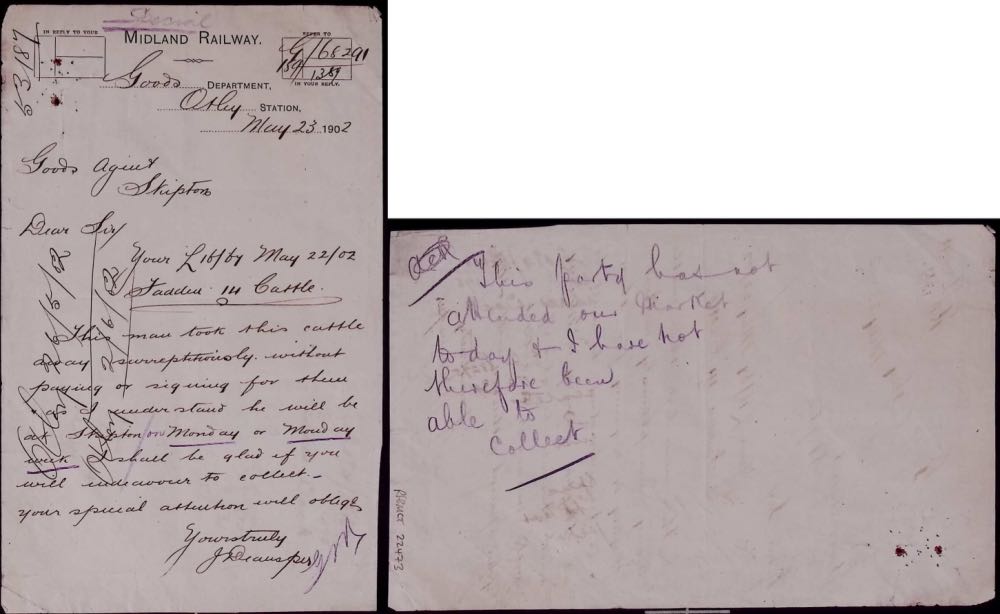 Special
IN REPLY TO YOUR
MIDLAND RAILWAY.
REFER TO
G/68291
159/1389
IN YOUR REPLY.
53187
Goods DEPARTMENT,
Otley STATION,
May 23 1902
Goods Agent
Skipton
Dear Sir/
Your May 22/02
14 Cattle.
This man took this cattle
away surreptitiously. without
paying or signing for them
I understand he will be
at Skipton on Monday or Monday
week I shall be glad if you
will endeavour to collect.
your special attention will oblige
Yours truly
J Deans
Otley 26/5/02
Otley 2/6/02
"This party has not
attended our Market
to-day & I have not
therefore been
able to
collect.
22473